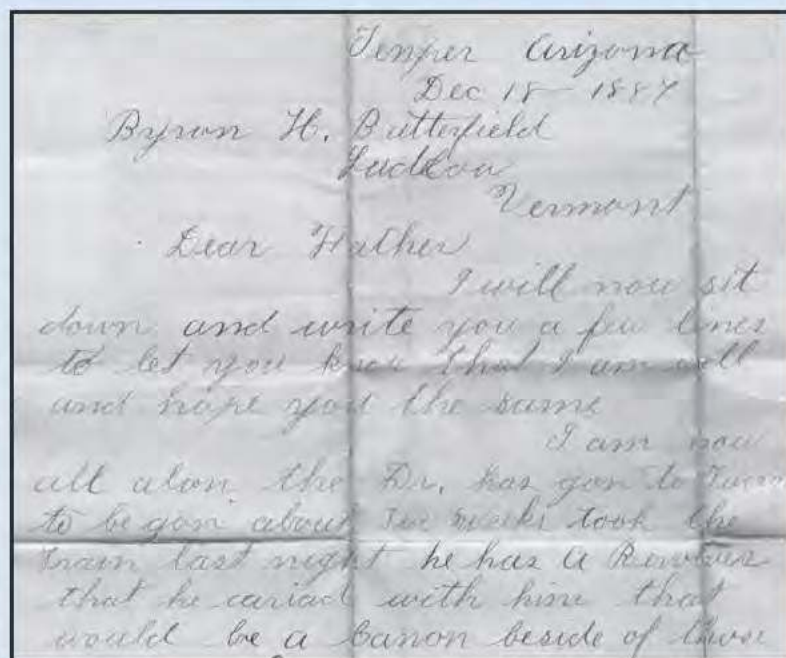 Temper Arizona
Dec 18 1887
Byron H. Butterfield
Ludlow
Vermont
Dear Father
I will now sit
down and write you a few lines
to let you know that I am well
and hope you the same
I am now
all alon the Dr. has gon to
to be gon about two weeks took the
Train last night he has a Revolver
that he cariad with him that
would be a Canon beside of those